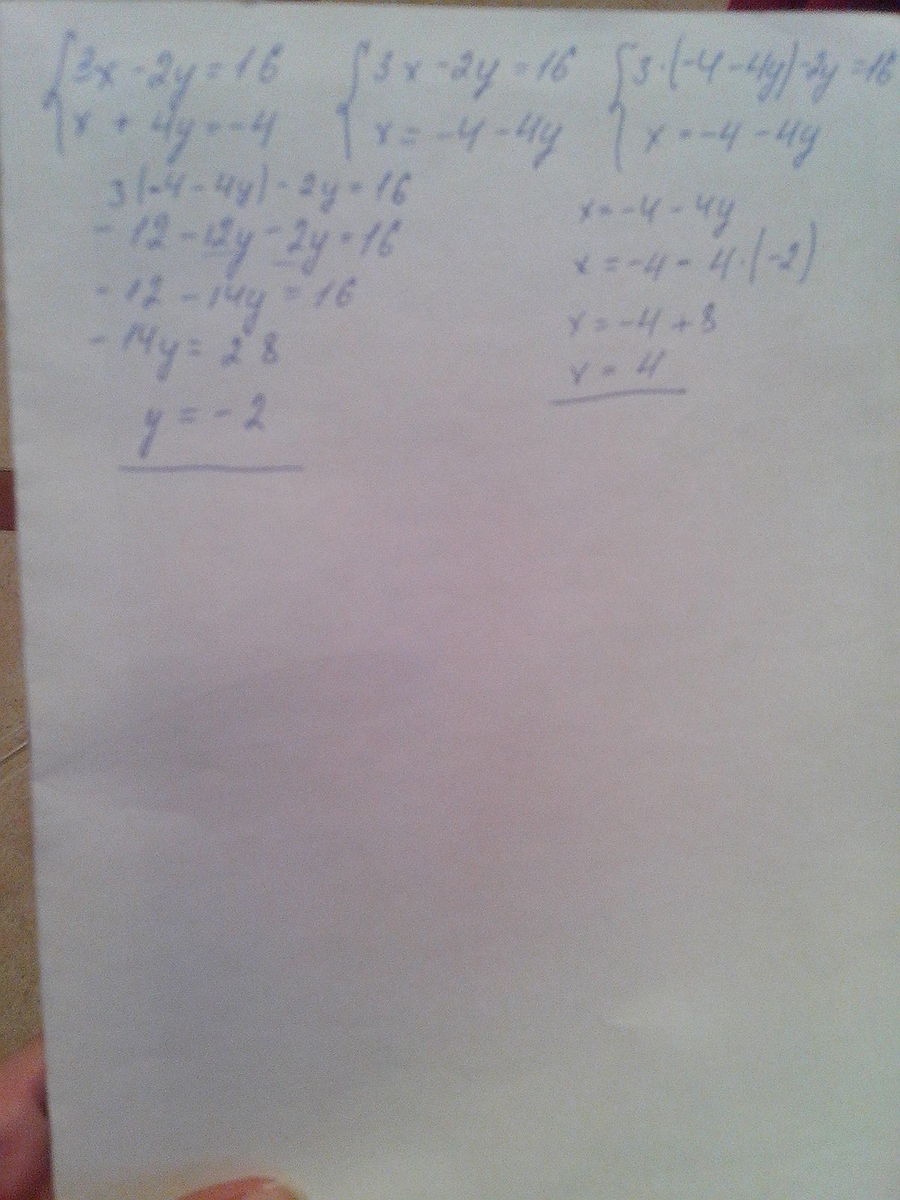 3x - 2y = 16
x + 4y = -4
3x - 2y = 16
x = -4 - 4y
3·(-4 - 4y) - 2y = 16
x = -4 - 4y
3(-4 - 4y) - 2y = 16
-12 - 12y - 2y = 16
-12 - 14y = 16
-14y = 28
y = -2
x = -4 - 4y
x = -4 - 4·(-2)
x = -4 + 8
x = 4